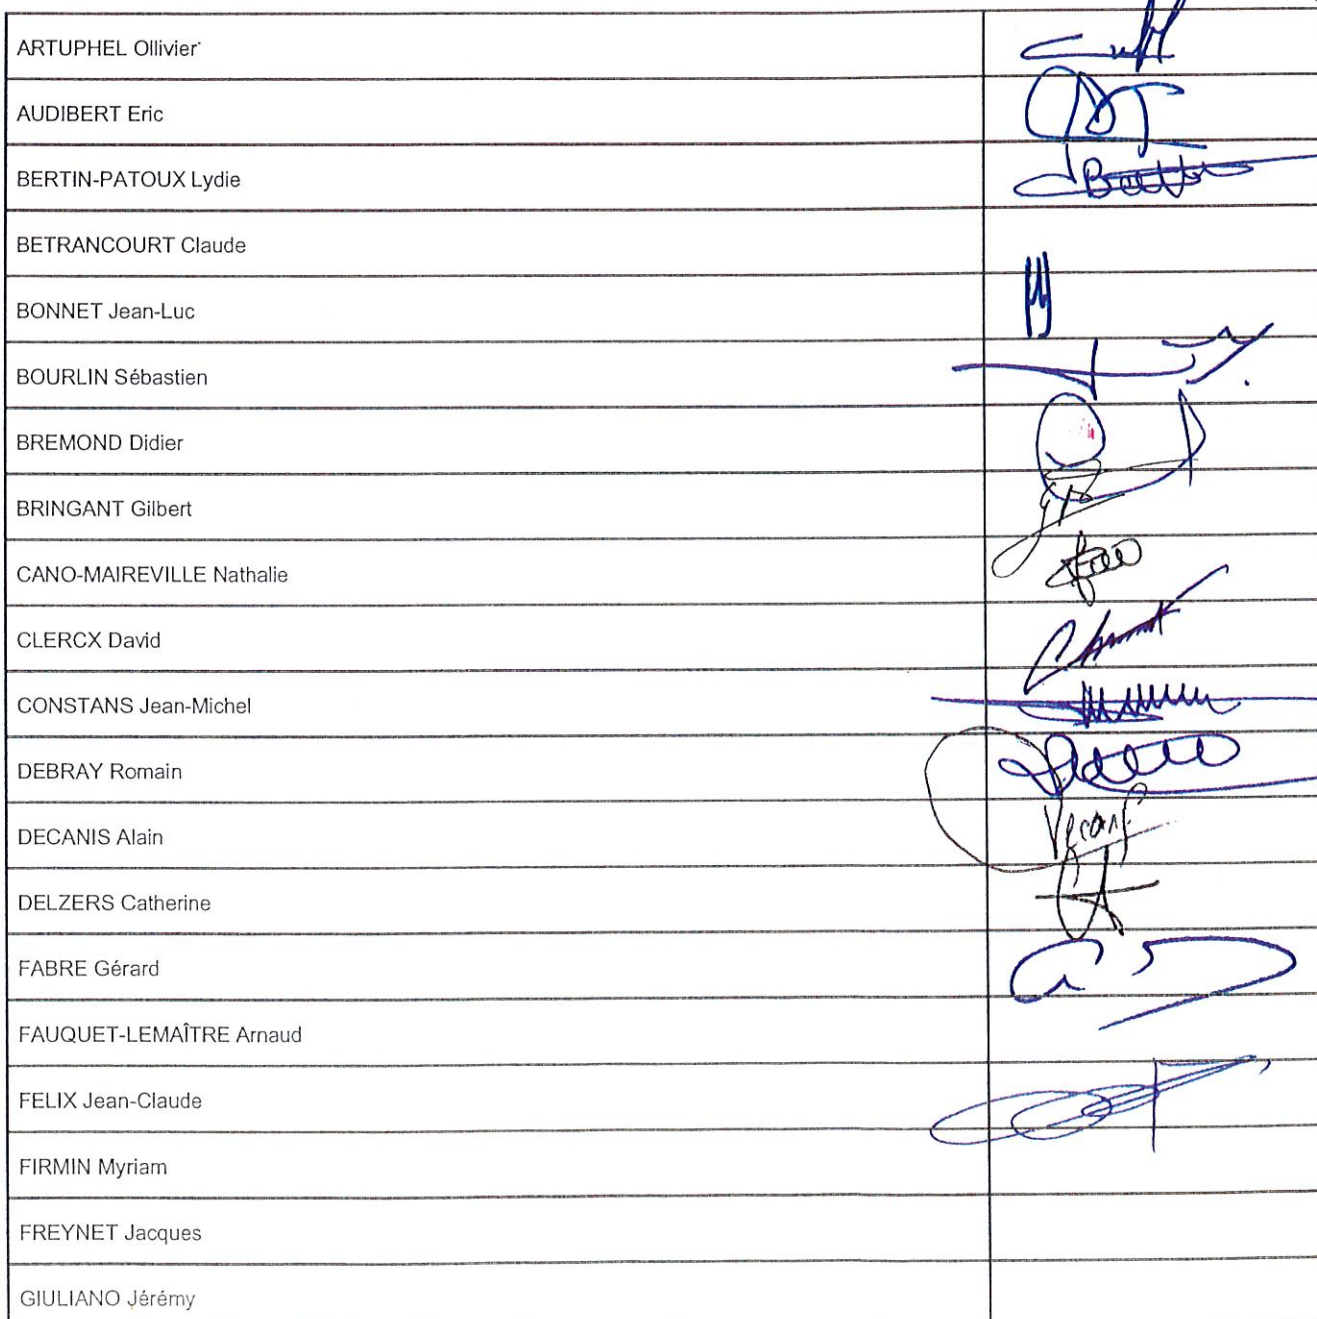 ARTUPHEL Ollivier
AUDIBERT Eric
BERTIN-PATOUX Lydie
BETRANCOURT Claude
BONNET Jean-Luc
BOURLIN Sébastien
BREMOND Didier
BRINGANT Gilbert
CANO-MAIREVILLE Nathalie
CLERCX David
CONSTANS Jean-Michel
DEBRAY Romain
DECANIS Alain
DELZERS Catherine
FABRE Gérard
FAUQUET-LEMAÎTRE Arnaud
FELIX Jean-Claude
FIRMIN Myriam
FREYNET Jacques
GIULIANO Jérémy